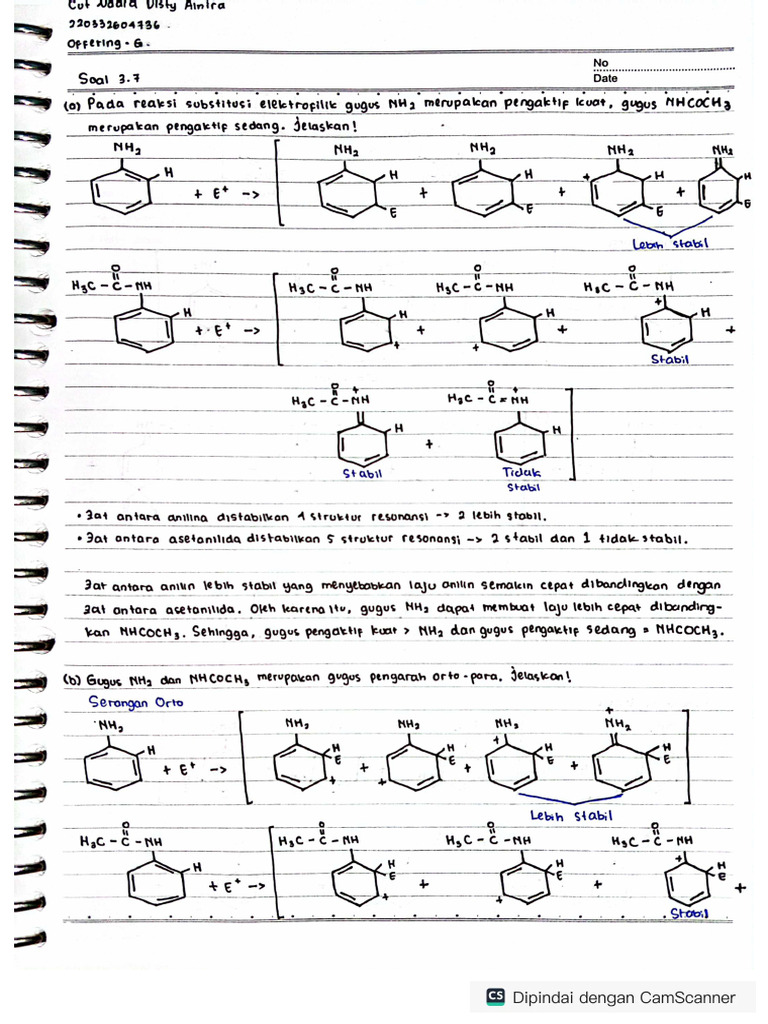 Cut Naara Disty Ainira
220332604736.
Offering - G.
No
Date
Soal 3.7
(a) Pada reaksi substitusi elektrofilik gugus NH2 merupakan pengaktif kuat, gugus NHCOCH3
merupakan pengaktif sedang. Jelaskan!
NH2 NH2 NH2 NH2 NH2
H + E+ -> H E + H E + + H E + H E
Lebih stabil
O O O O
H3C - C - NH H3C - C - NH H3C - C - NH H3C - C - NH
H + E+ -> H + + H + + + H +
Stabil
O + O +
H3C - C - NH H3C - C = NH
H + H
Stabil Tidak
Stabil
• Zat antara anilina distabilkan 4 struktur resonansi -> 2 lebih stabil.
• Zat antara asetanilida distabilkan 5 struktur resonansi -> 2 stabil dan 1 tidak stabil.
Zat antara anilin lebih stabil yang menyebabkan laju anilin semakin cepat dibandingkan dengan
zat antara asetanilida. Oleh karena itu, gugus NH2 dapat membuat laju lebih cepat dibanding-
kan NHCOCH3. Sehingga, gugus pengaktif kuat > NH2 dan gugus pengaktif sedang = NHCOCH3.
(b) Gugus NH2 dan NHCOCH3 merupakan gugus pengarah orto-para. Jelaskan!
Serangan Orto
NH2 NH2 NH2 NH2 + NH2
H + E+ -> H E + + H E + + + H E + H E
Lebih stabil
O O O O
H3C - C - NH H3C - C - NH H3C - C - NH H3C - C - NH
H + E+ -> H E + + H E + + + H E +
Stabil
CS Dipindai dengan CamScanner